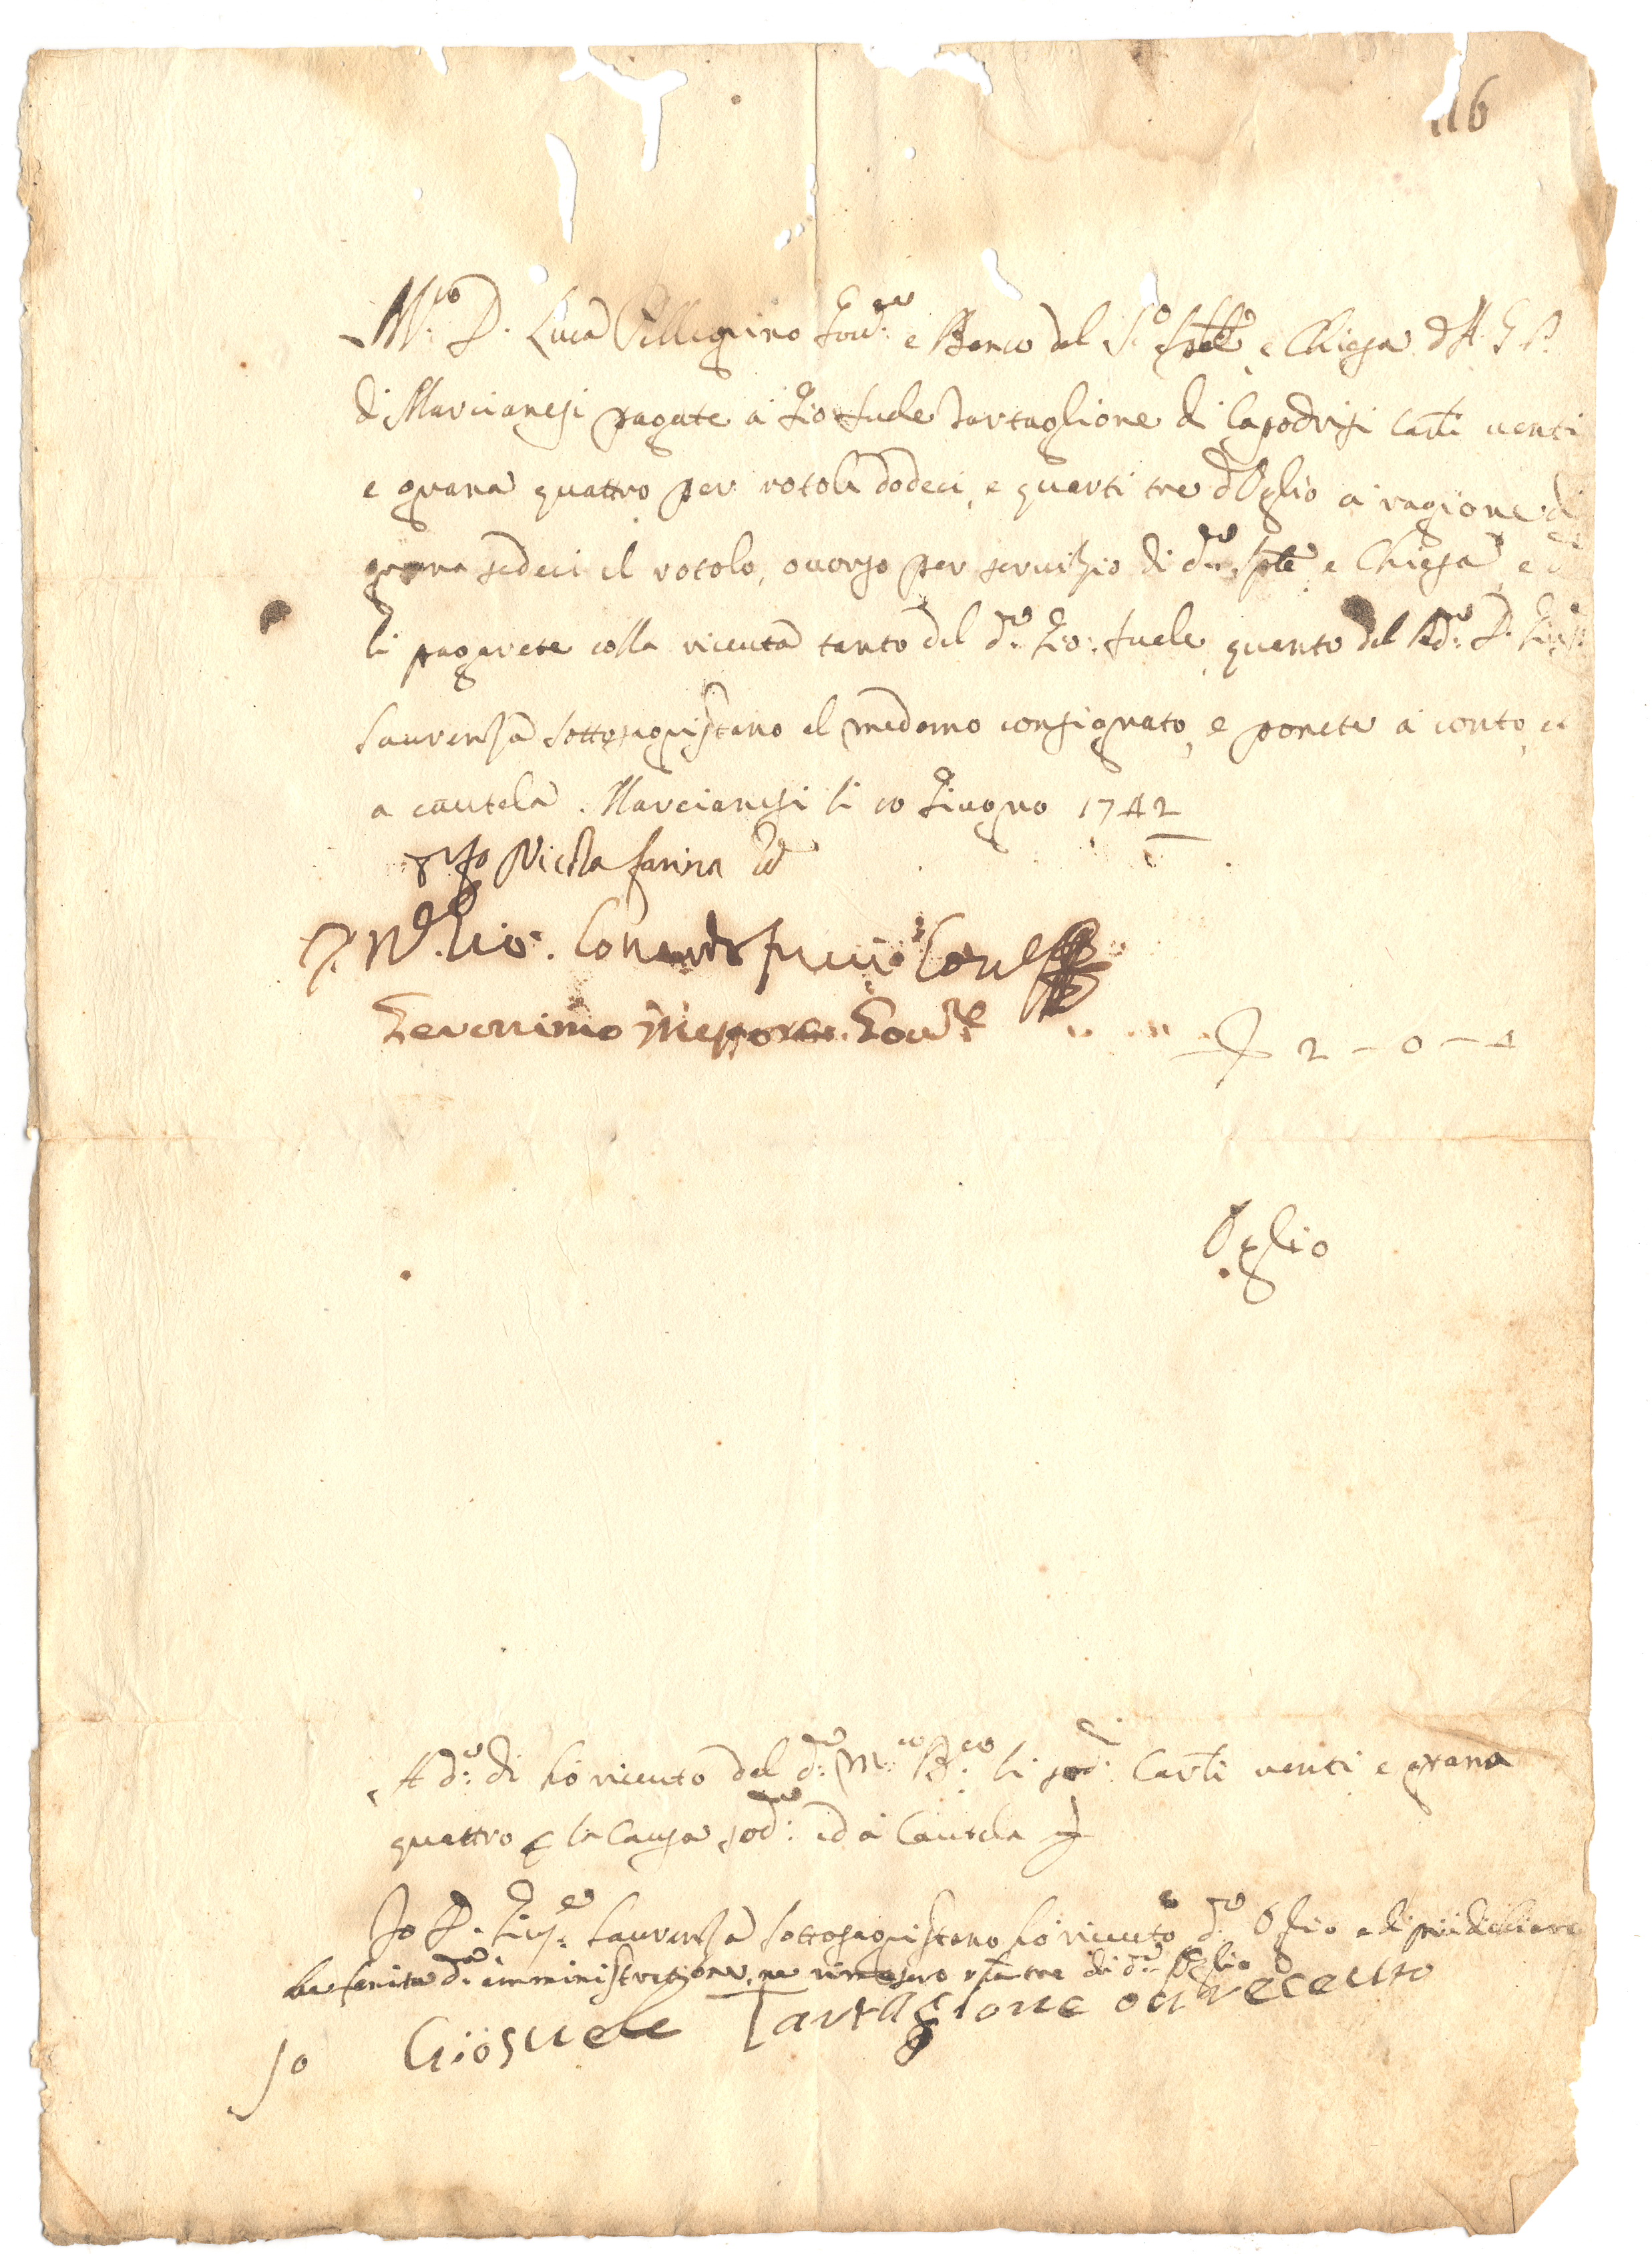 116
M.co D. Luca Pellegrino Gov.re e Banco del S.o Sple e Chiesa d'A. G. P.
di Marcianesi pagate à Giosuele Tartaglione di Capodrisi Carli venti
e grana quattro per rotola dodeci, e quarti tre d'Oglio à ragione di
grana sedeci il rotolo, overso per servitzio di d.o Sple e Chiesa, e
li pagarete colla riceuta tanto del d.o Gio:suele, quanto del R.do D. Gius.e
Laurenza sottosagristano il medemo consignato, e ponete à conto, et
a cautela. Marcianesi li 10 Giugno 1742
Nicola farina
Gov.re
D 2 - 0 - 4
Oglio
A d.o di hò riceuto dal d.o M.co B.co li sud.i Carli venti e grana
quattro per la Causa sod.a ed à Cautela
Io D. Gius.e Laurenza sottosagristano hò riceuto d.o Oglio e di più dichiaro
d.a amministrazione, ne rimasero tre di d.o Oglio
Io Giosuele Tartaglione o receuto